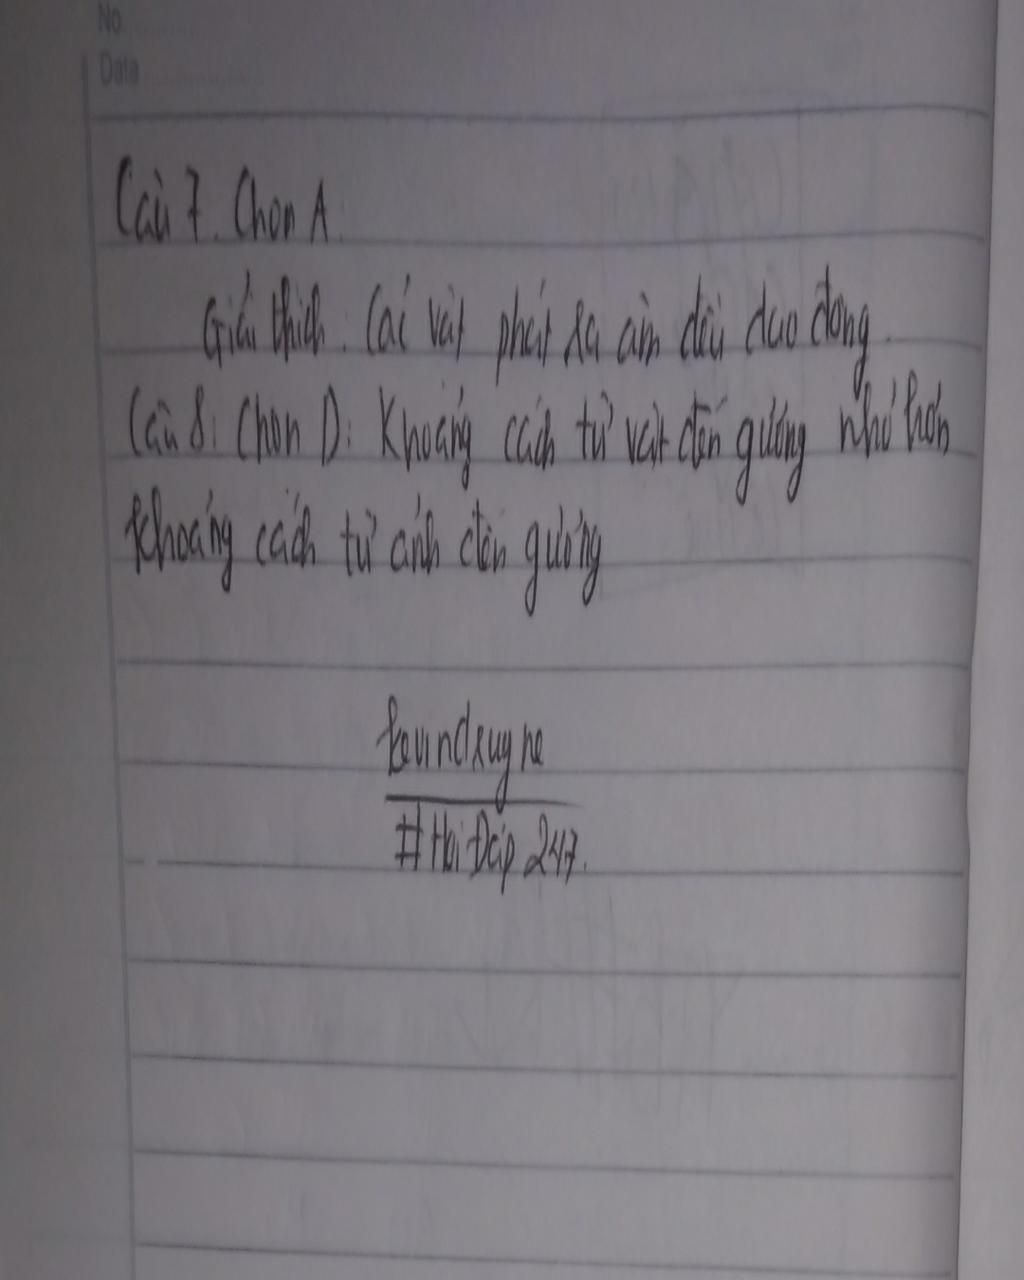 No
Date
Câu 7. Chọn A.
Giải thích. Các vật phát ra âm đều dao động.
Câu 8: Chọn D: Khoảng cách từ vật đến gương nhỏ hơn
khoảng cách từ ảnh đến gương
kevindxuyne
#Hỏi Đáp 247.